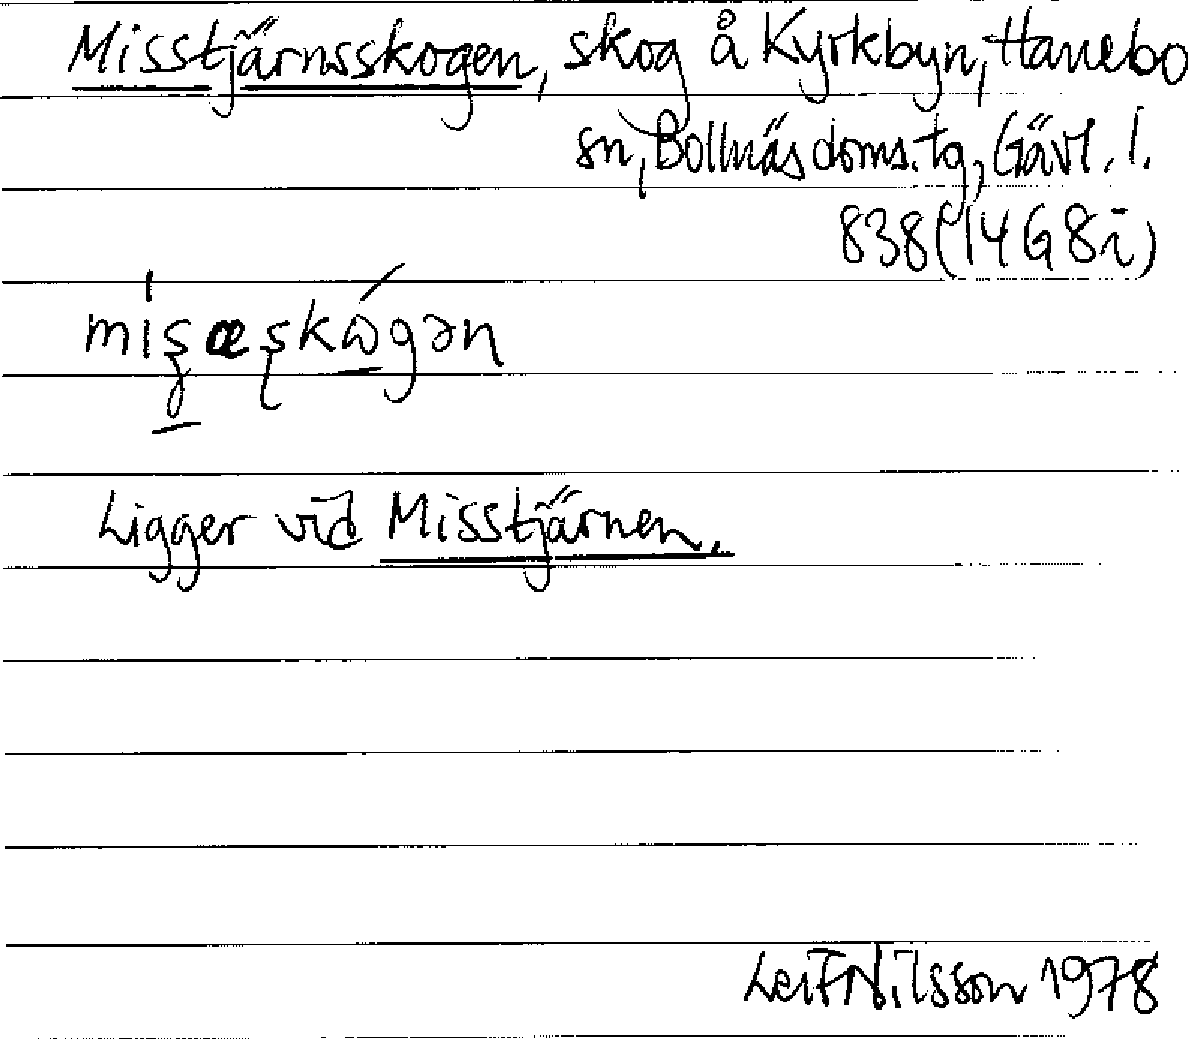 Misstjärnsskogen, skog å Kyrkbyn, Hanebo
sn, Bollnäs doms.tg, Gävl. l.
838 (14G 8i)
Ligger vid Misstjärnen.
Leif Nilsson 1978